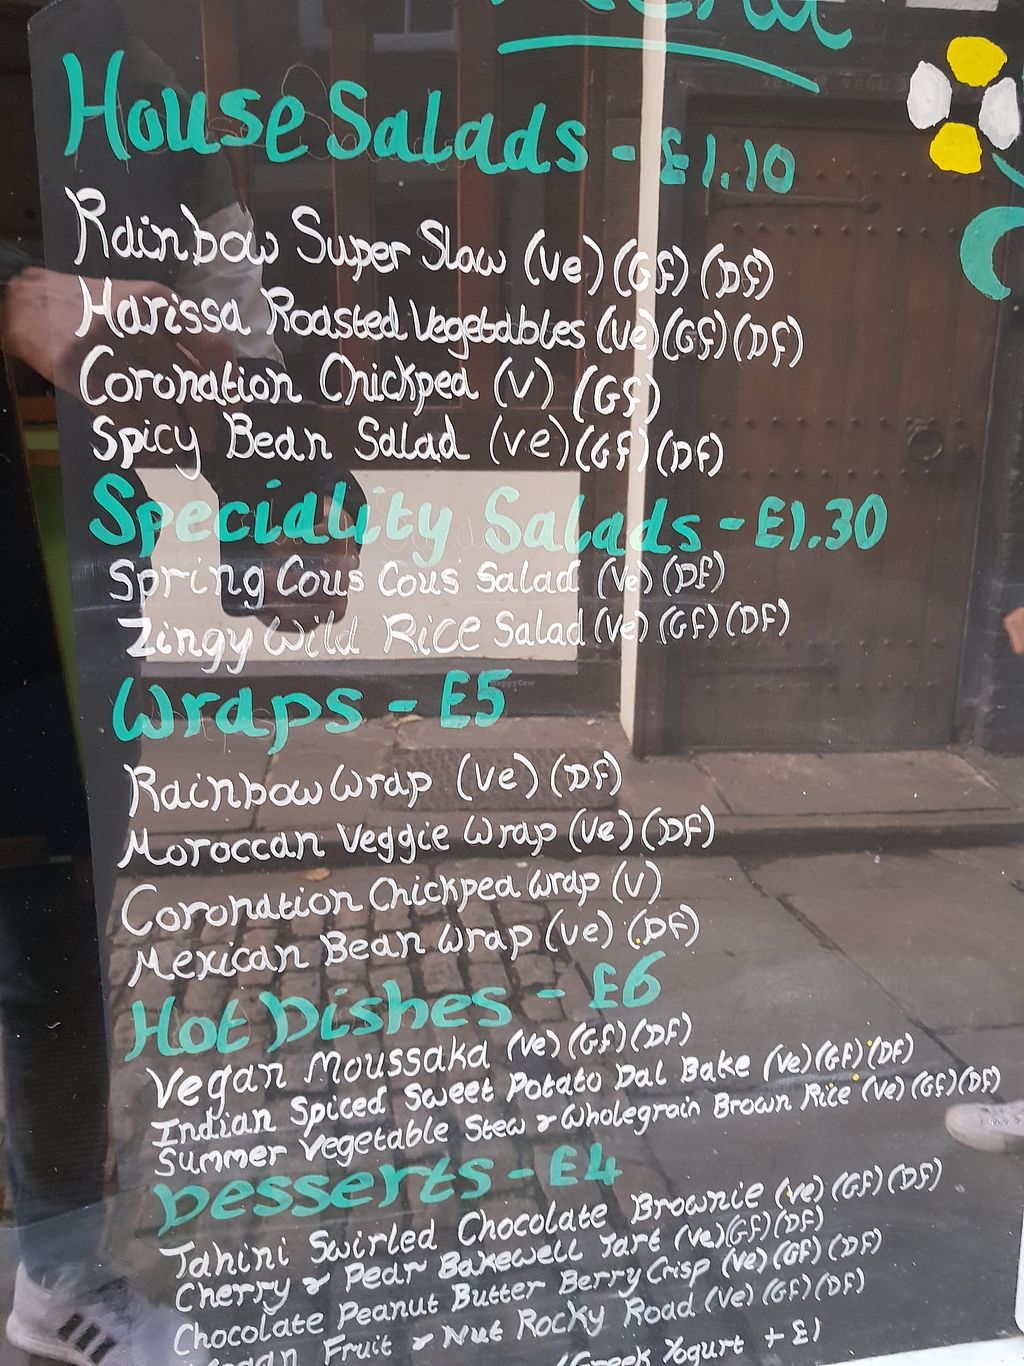 Menu
House Salads - £1.10
Rainbow Super Slaw (ve) (GF) (DF)
Harissa Roasted Vegetables (ve) (GF) (DF)
Coronation Chickpea (V) (GF)
Spicy Bean Salad (ve) (GF) (DF)
Speciality Salads - £1.30
Spring Cous Cous Salad (ve) (DF)
Zingy Wild Rice Salad (ve) (GF) (DF)
Wraps - £5
Rainbow Wrap (ve) (DF)
Moroccan Veggie Wrap (ve) (DF)
Coronation Chickpea Wrap (V)
Mexican Bean Wrap (ve) (DF)
Hot Dishes - £6
Vegan Moussaka (ve) (GF) (DF)
Indian Spiced Sweet Potato Dal Bake (ve) (GF) (DF)
Summer Vegetable Stew & Wholegrain Brown Rice (ve) (GF) (DF)
Desserts - £4
Tahini Swirled Chocolate Brownie (ve) (GF) (DF)
Cherry & Pear Bakewell Tart (ve) (GF) (DF)
Chocolate Peanut Butter Berry Crisp (ve) (GF) (DF)
Vegan Fruit & Nut Rocky Road (ve) (GF) (DF)
(Greek Yogurt + £1